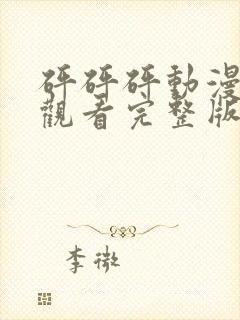 砰砰砰動漫
觀看完整版
李微